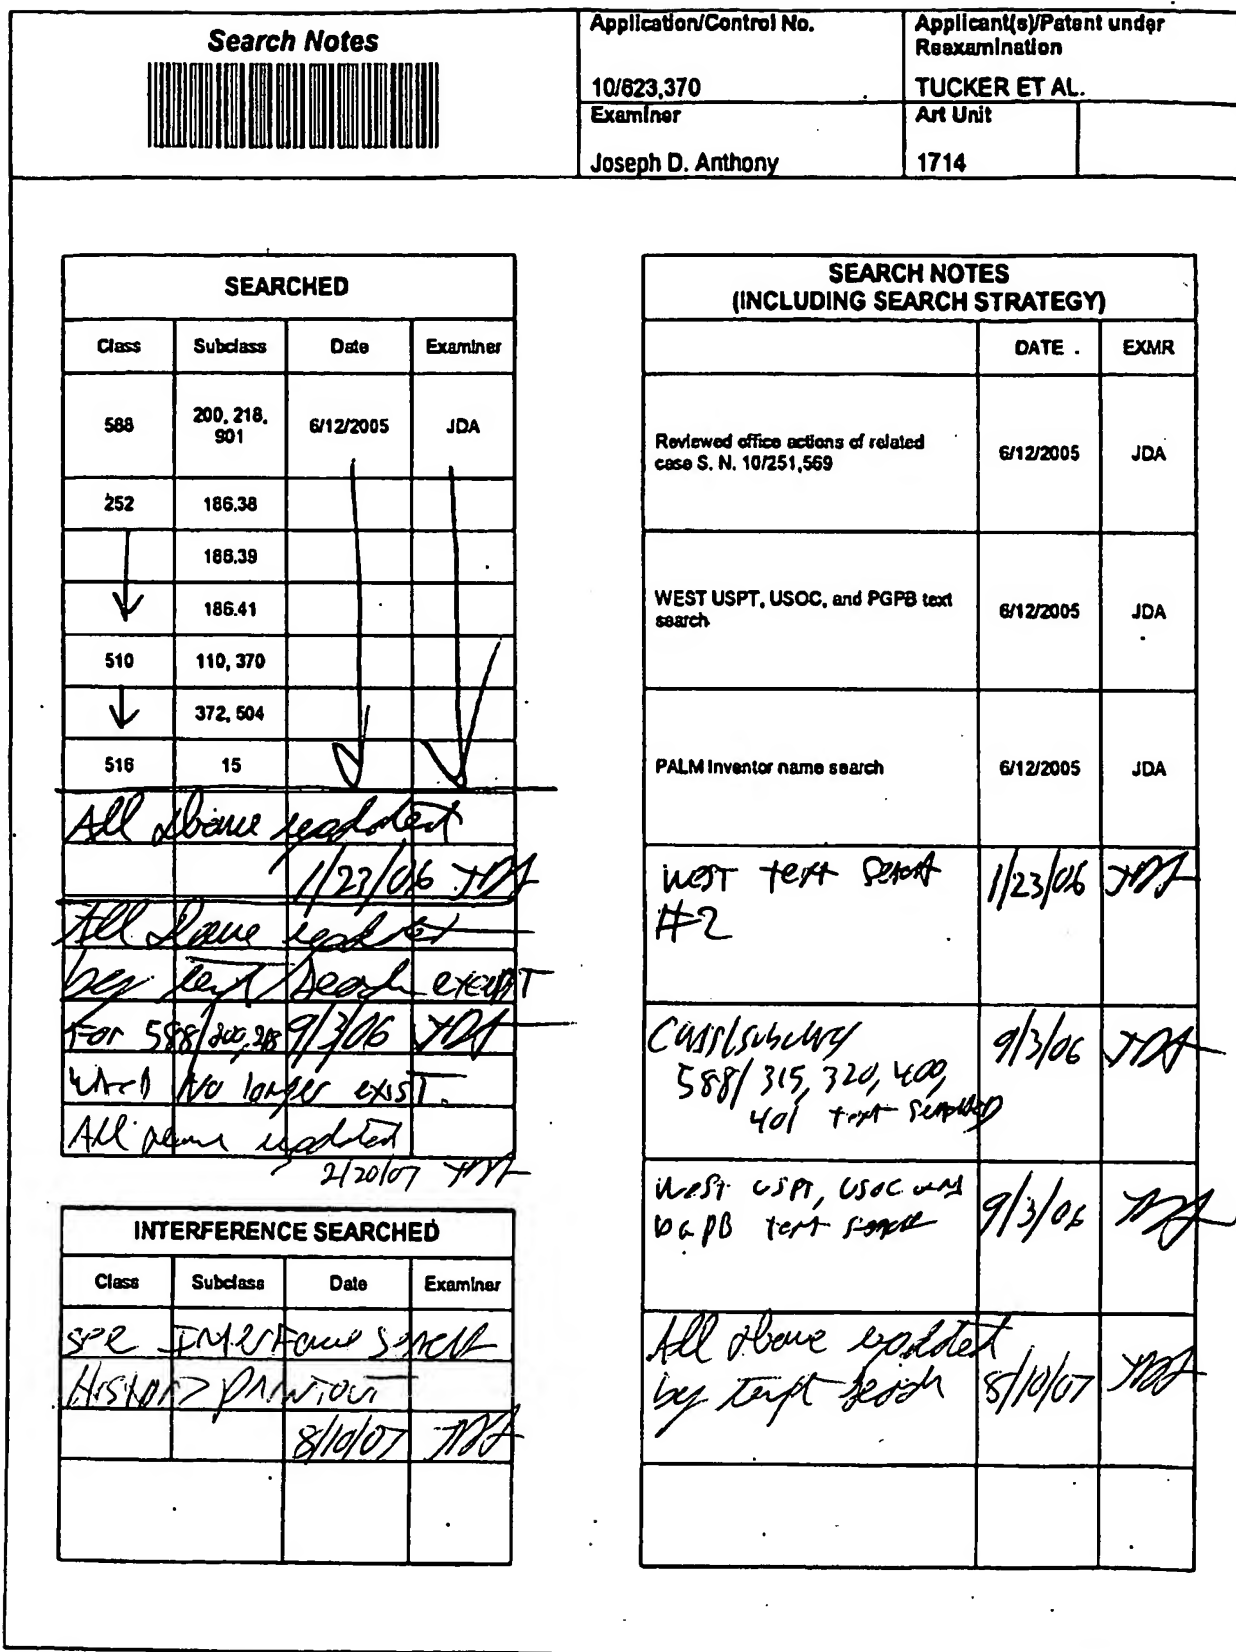 Search Notes
Application/Control No.
10/623,370
Applicant(s)/Patent under
Reexamination
TUCKER ET AL.
Examiner
Joseph D. Anthony
Art Unit
1714
SEARCHED
Class Subclass Date Examiner
588 200, 218, 901 6/12/2005 JDA
252 186.38
186.39
186.41
510 110, 370
372, 504
516 15
All above updated
1/23/06 JDA
All above updated
by text search except
For 588/200,218 9/3/06 JDA
which No longer exist.
All above updated
2/20/07 JDA
INTERFERENCE SEARCHED
Class Subclass Date Examiner
see Interference search
History printout
8/10/07 JDA
SEARCH NOTES
(INCLUDING SEARCH STRATEGY)
DATE EXMR
Reviewed office actions of related
case S. N. 10/251,569 6/12/2005 JDA
WEST USPT, USOC, and PGPB text
search 6/12/2005 JDA
PALM Inventor name search 6/12/2005 JDA
West text Search 1/23/06 JDA
#2
Class/subclass 9/3/06 JDA
588/315, 320, 400,
401 text searched
West USPT, USOC and
PGPB text search 9/3/06 JDA
All above updated
by text search 8/10/07 JDA